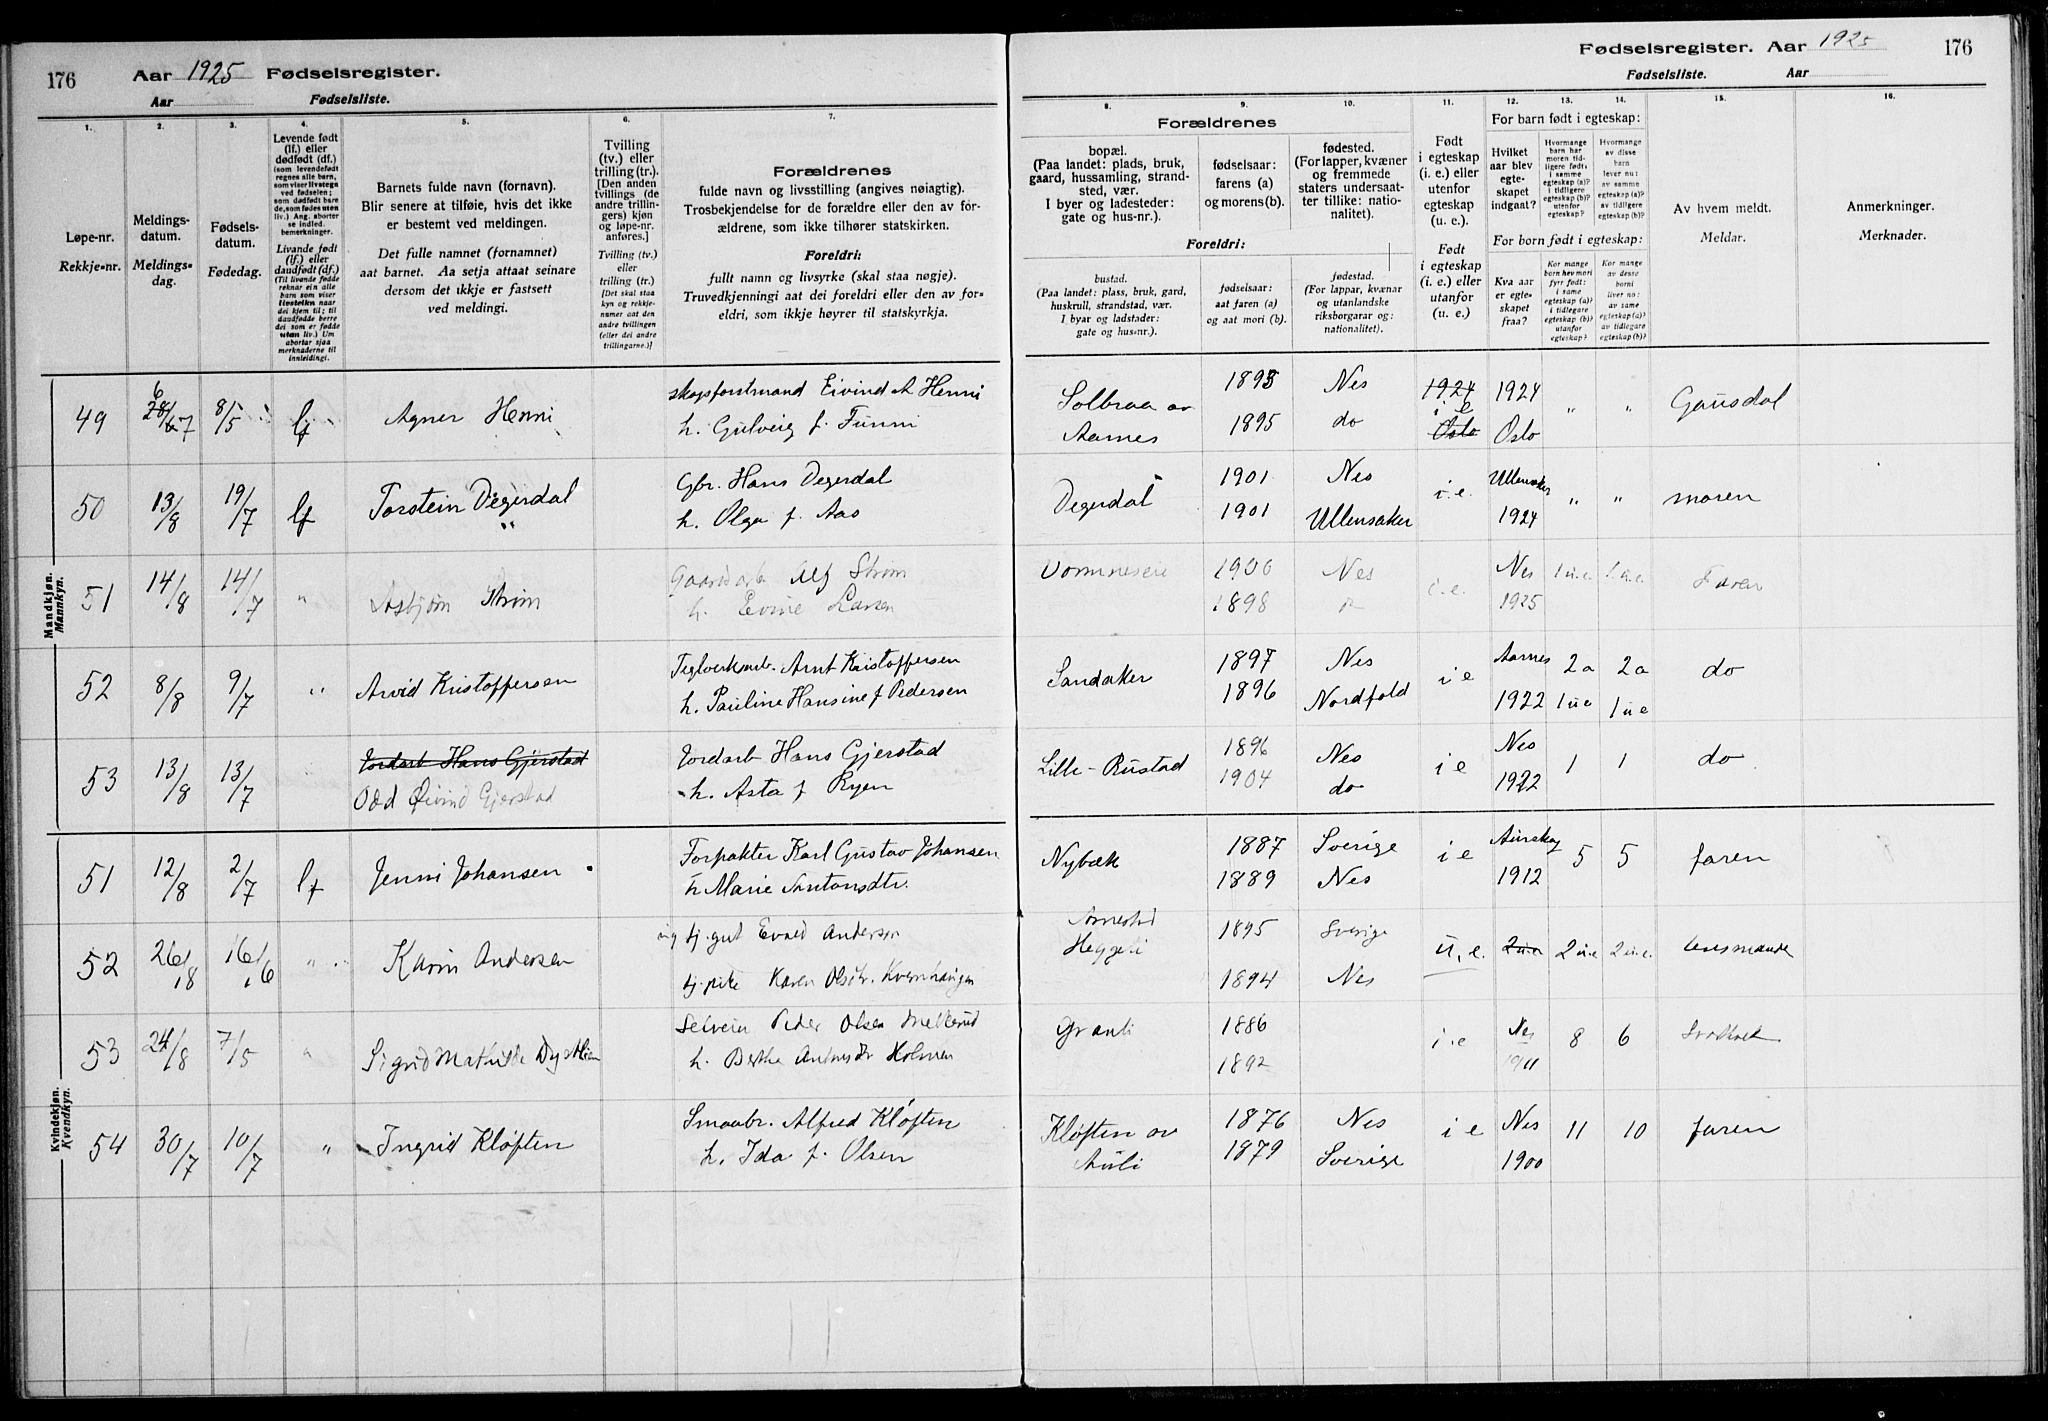 176 Aar 1925 Fødselsregister.
Aar Fødselsliste.
Fødselsregister. Aar 1925 176
Fødselsliste. Aar
1.
Løpe-nr.
Rekkje-nr.
2.
Meldings-
datum.
Meldings-
dag.
3.
Fødsels-
datum.
Fødedag.
4.
Levende født
(lf.) eller
dødfødt (df.)
(som levendefødt
regnes alle barn,
som viser livstegn
ved fødselen;
som dødfødt bare
de, som fødes uten
liv.) Ang. aborter
se indled.
bemerkninger.
Livande født
(lf.) eller
daudfødt (df.)
(Til livande fødde
reknar ein alle
barn som viser
livsteikn naar
dei kjem til; til
daudfødde berre
dei som er fødde
utan liv.) Um
abortar sjaa
merknaderne til
innleidingi.
5.
Barnets fulde navn (fornavn).
Blir senere at tilføie, hvis det ikke
er bestemt ved meldingen.
Det fulle namnet (fornamnet)
aat barnet. Aa setja attaat seinare
dersom det ikkje er fastsett
ved meldingi.
6.
Tvilling
(tv.) eller
trilling (tr.).
[Den anden
tvillings (de
andre trillin-
gers) kjøn
og løpe-nr.
anføres.]
Tvilling (tv.)
eller
trilling (tr.)
[Det skal staa
kyn og rekkje-
numer aat den
andre tvillingen
(eller dei andre
trillingarne.)]
7.
Forældrenes
fulde navn og livsstilling (angives nøiagtig).
Trosbekjendelse for de forældre eller den av for-
ældrene, som ikke tilhører statskirken.
Foreldri:
fullt namn og livsyrke (skal staa nøgje).
Truvedkjenningi aat dei foreldri eller den av for-
eldri, som ikkje høyrer til statskyrkja.
8. 9. 10.
Forældrenes
bopæl.
(Paa landet: plads, bruk,
gaard, hussamling, strand-
sted, vær.
I byer og ladesteder:
gate og hus-nr.).
fødselsaar:
farens (a)
og morens (b).
fødested.
(For lapper, kvæner
og fremmede
staters undersaat-
ter tillike: natio-
nalitet).
Foreldri:
bustad.
(Paa landet: plass, bruk, gard,
huskrull, strandstad, vær.
I byar og ladstader:
gate og hus-nr.).
fødselsaar:
aat faren (a)
og aat mori (b).
fødestad.
(For lappar, kvænar
og utanlandske
riksborgarar og:
nationalitet).
11.
Født
i egteskap
(i. e.) eller
utenfor
egteskap
(u. e.).
Født
i egteskap
(i. e.) eller
utanfor
(u. e.).
12. 13. 14.
For barn født i egteskap:
Hvilket
aar blev
egte-
skapet
indgaat?
Hvormange
barn har
moren tid-
ligere født:
i samme
egteskap (a)?
i tidligere
egteskap (b)?
utenfor
egteskap?
Hvormange
av disse
barn
lever nu:
av samme
egteskap (a)?
av tidligere
egteskap (b)?
For born født i egteskap:
Kva aar
er egte-
skapet
fraa?
Kor mange
born hev mori
fyrr født:
i same
egteskap (a)?
i tidlegare
egteskap (b)?
utanfor
egteskap?
Kor mange
av desse
borni
liver no:
av same
egteskap (a)?
av tidlegare
egteskap (b)?
15.
Av hvem meldt.
Meldar.
16.
Anmerkninger.
Merknader.
Mandkjøn.
Mannkyn.
49 8/5 lf Agner Henni
skogsforstmand Eivind A Henni
h. Gulveig f. Funni
Solbraa av
Aarnes
1893
1895
Nes
do
1924
i e
Oslo
1924
Oslo
" " Gausdal
50 13/8 19/7 lf Torstein Degerdal
Gbr. Hans Degerdal
h. Olga f. Aas
Degerdal
1901
1901
Nes
Ullensaker
i. e.
Ullensaker
1924
" " moren
51 14/8 14/7 " Asbjørn Strøm
Gaardarb Alf Strøm
h. Evine Larsen
Vormneseie
1900
1898
Nes
i. e.
Nes
1925
1 u.e 1 u.e Faren
52 8/8 9/7 " Arvid Kristoffersen
Teglverksarb. Arnt Kristoffersen
h. Pauline Hansine f Pedersen
Sandaker
1897
1896
Nes
Nordfold
i e
Aarnes
1922
2 a
1 u e
2 a
1 u e
do
53 13/8 13/7 "
Jordarb Hans Gjerstad
Odd Øivind Gjerstad
Jordarb Hans Gjerstad
h. Asta f Ryen
Lille-Rustad
1896
1904
Nes
do
i e
Nes
1922
1 1 do
Kvindekjøn.
Kvendkyn.
51 12/8 2/7 lf Jenni Johansen
Forpakter Karl Gustav Johansen
h Marie Antonsdtr.
Nybæk
1887
1889
Sverige
Nes
i e
Aurskog
1912
5 5 faren
52 26/8 16/6 " Karin Andersen
ug tj. gut Evald Andersen
tj. pike Karen Olsdtr. Kvernhaugen
Heggeli
1895
1894
Sverige
Nes
u. e.
2 u.e 2 u.e 2 u.e.
53 24/8 7/5 " Sigrid Mathilde Dystlien
Selveier Peder Olsen Melkerud
h. Berthe Antonsdtr Holmen
Granli
1886
1892
i-e
Nes
1911
8 6
54 30/7 10/7 " Ingrid Kløften
Smaabr. Alfred Kløften
h. Ida f. Olsen
Kløften av
Auli
1876
1879
Nes
Sverige
i e
Nes
1900
11 10 faren